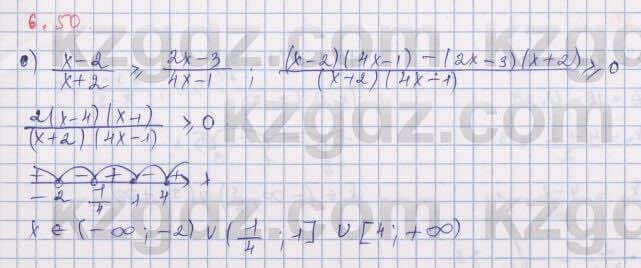 6.50.
в) \frac{x-2}{x+2} ≥ \frac{2x-3}{4x-1} ; \frac{(x-2)(4x-1)-(2x-3)(x+2)}{(x+2)(4x-1)} ≥ 0
\frac{2(x-4)(x-1)}{(x+2)(4x-1)} ≥ 0
+ - + - + x
-2 \frac{1}{4} 1 4
x ∈ (-∞; -2) ∪ (\frac{1}{4}; 1] ∪ [4; +∞)
kzgdz.com